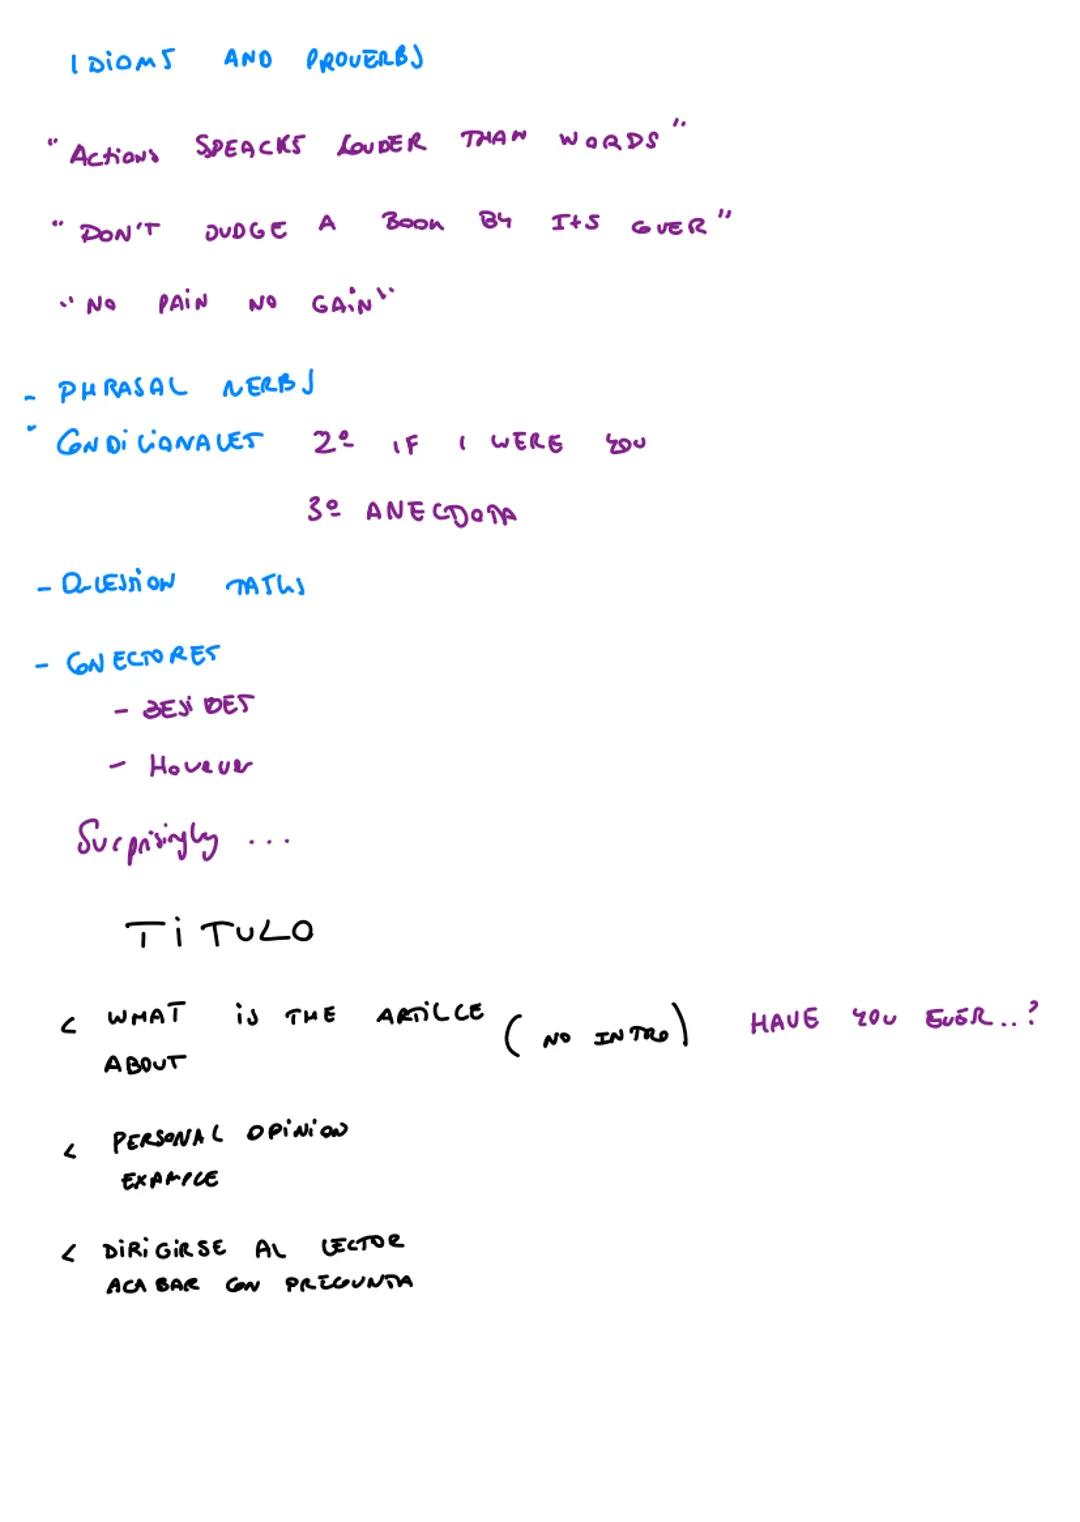 IDIOMS AND PROVERBS
"Actions SPEACKS LOUDER THAN WORDS"
"DON'T JUDGE A BOOK BY ITS COVER"
"NO PAIN NO GAIN"
- PHRASAL VERBS
- CONDICIONALES 2º IF I WERE YOU
3º ANECDOTA
- QUESTION TAGS
- CONECTORES
- BESIDES
- However
Surprisingly ...
TITULO
< WHAT is THE ARTILCE (NO INTRO) HAVE YOU EVER..?
ABOUT
< PERSONAL OPINION
EXAMPLE
< DIRIGIRSE AL LECTOR
ACABAR CON PREGUNTA